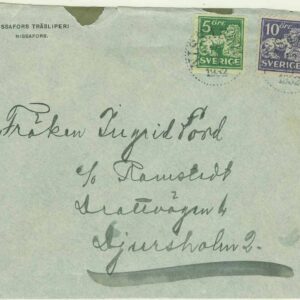 ISSAFORS TRÄSLIPERI
NISSAFORS.
5 ÖRE
SVERIGE
10 ÖRE
SVERIGE
1932
Fröken Ingrid
c/o Ramstedt
Drottvägen 4
Djursholm 2.